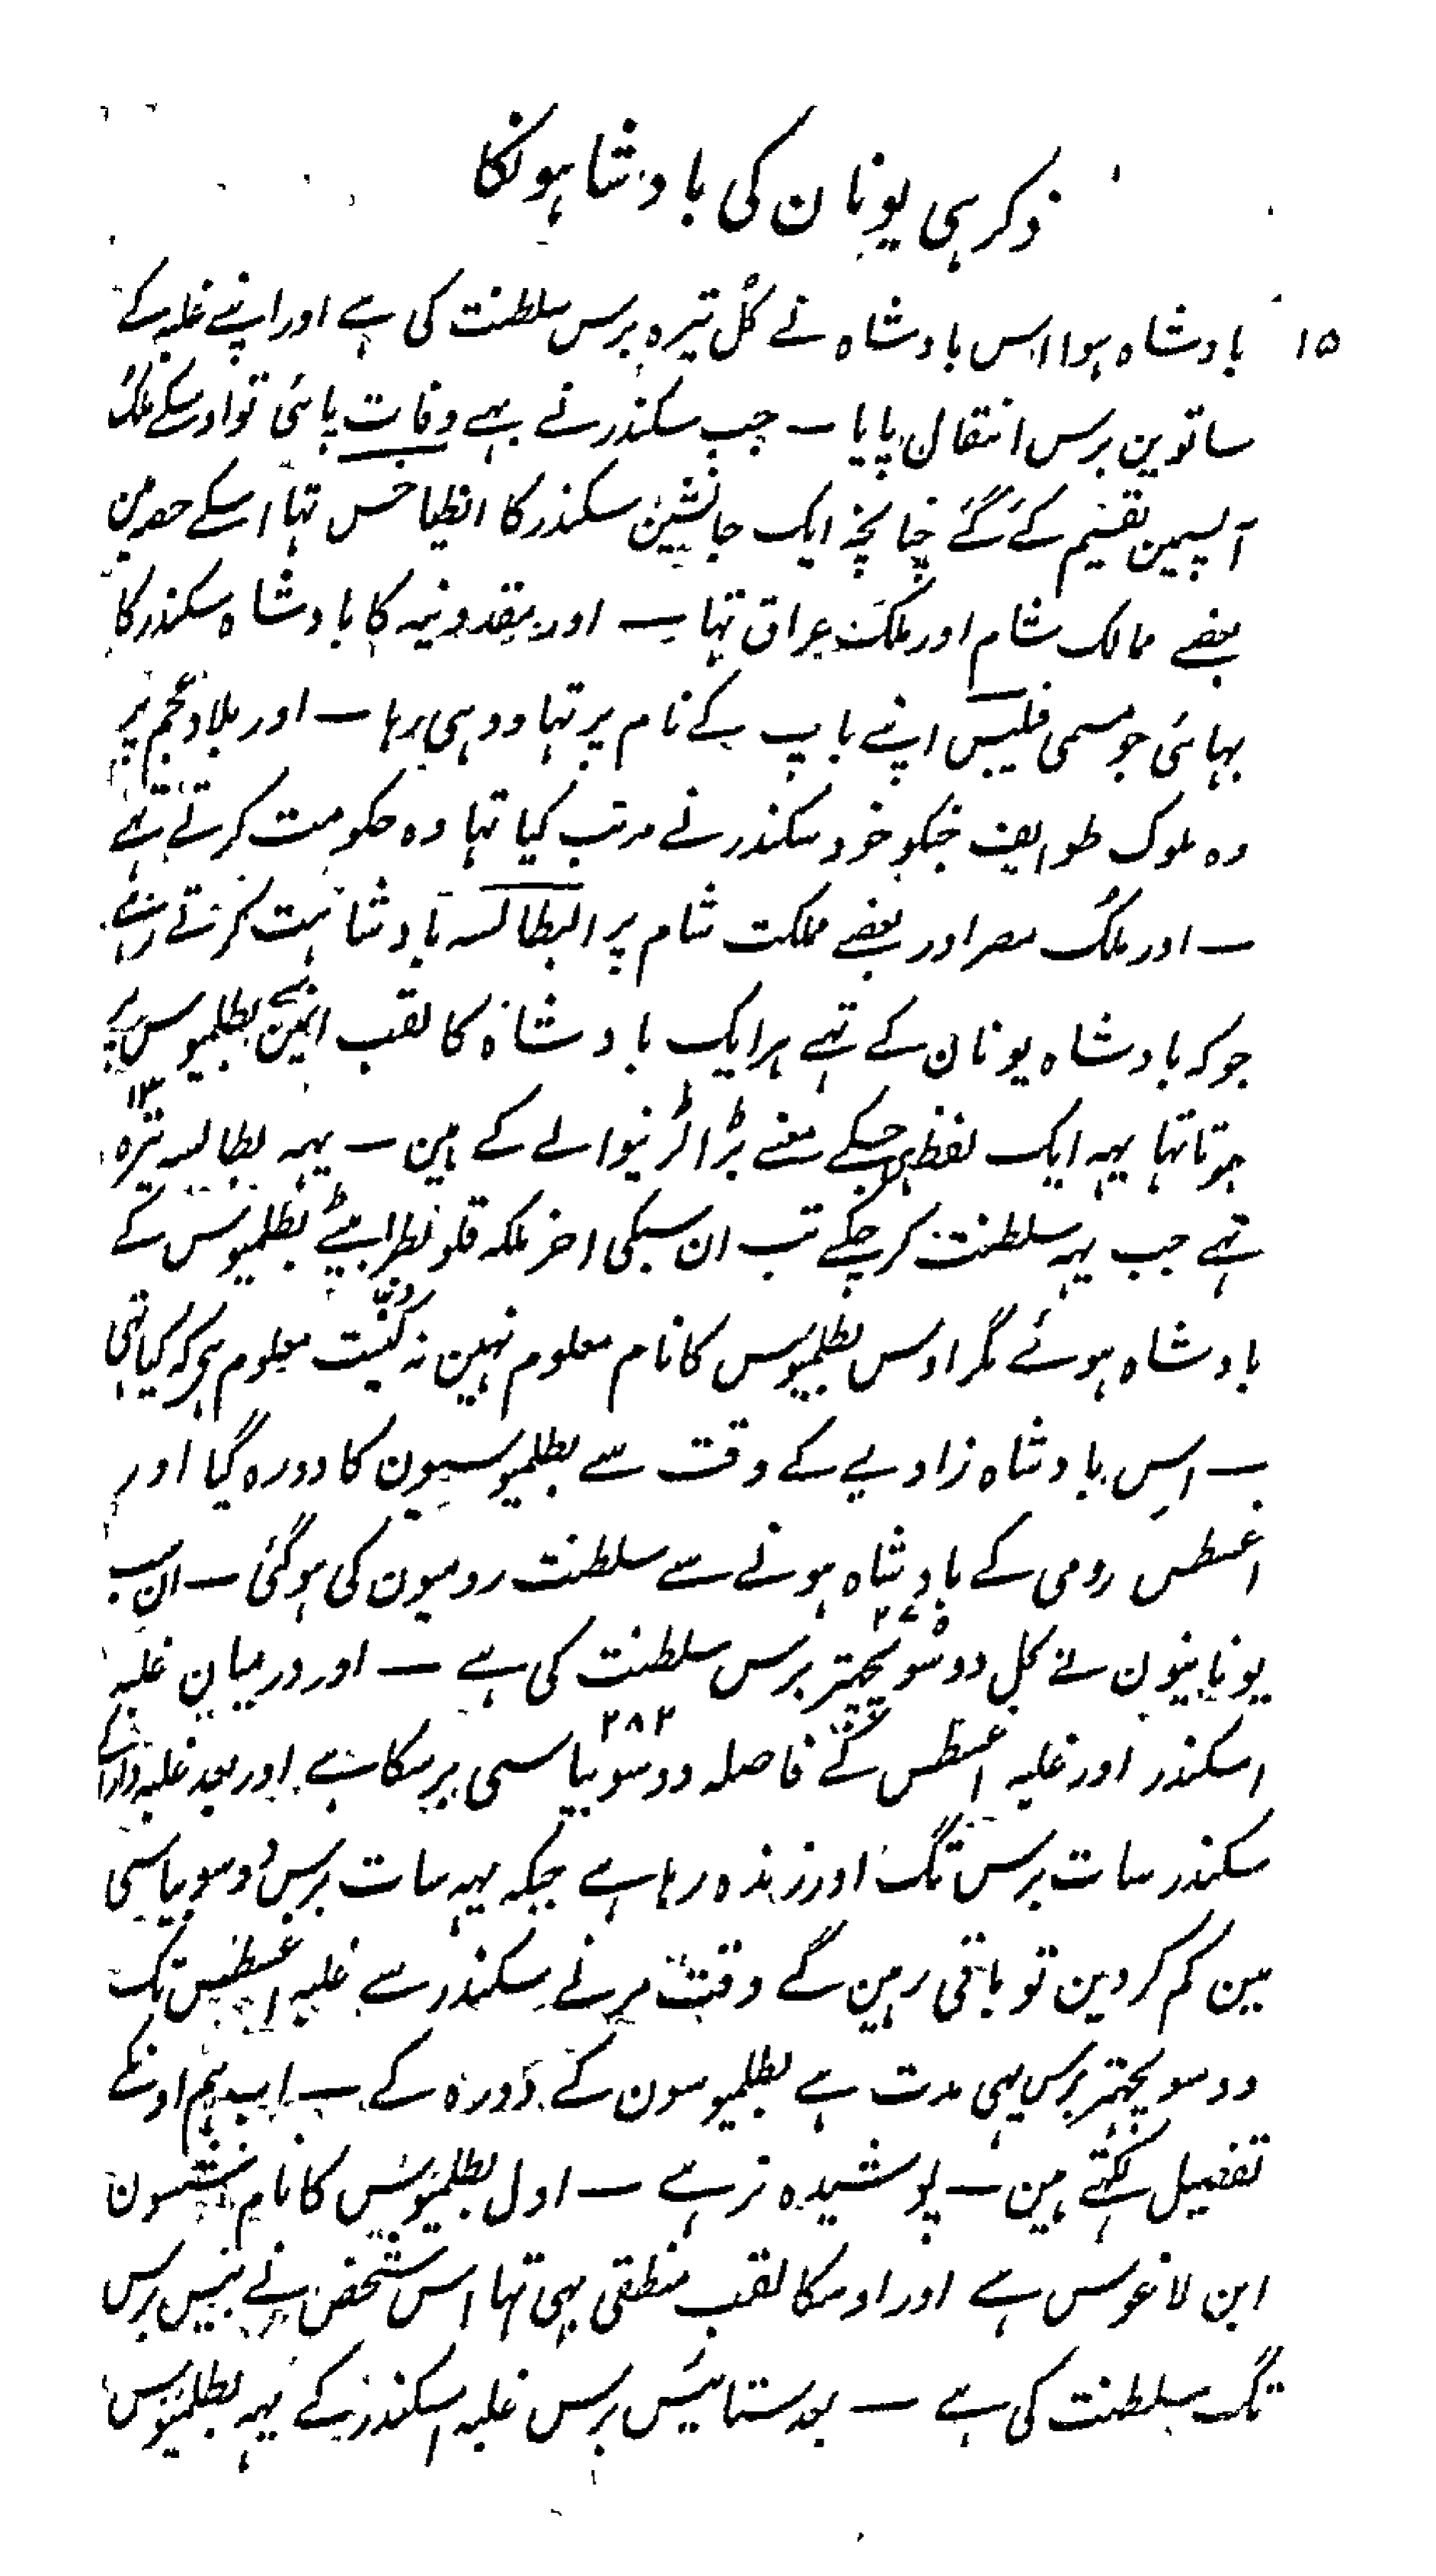 ذکر ہی یونان کی بادشاہونکا
۱۵ بادشاہ ہوا اس بادشاہ نے کل تیرہ برس سلطنت کی ہے اور اپنے غلبہ کے
ساتوین برس انتقال پایا — جب سکندر نے بہے وفات پائی تو اوسکے ملک
آپسمین تقسیم کئے گئے چنانچہ ایک جانشین سکندر کا انطیاخس تہا اسکے حصہ مین
بعضے ممالک شام اور ملک عراق تہا — اور مقدونیہ کا بادشاہ سکندر کا
بہائی جو مسمی فلیبس اپنے باپ کے نام پر تہا ووہی رہا — اور بلاد عجم پر
وہ ملوک طوایف جنکو خود سکندر نے مرتب کیا تہا وہ حکومت کرتے تہے
— اور ملک مصر اور بعضے مملکت شام پر البطالسہ بادشاہت کرتے رہے
جو کہ بادشاہ یونان کے تہے ہر ایک بادشاہ کا لقب انمین سے بطلمیوس
ہوتا تہا یہہ ایک لفظ ہی جسکے معنے بڑا لڑنیوالے کے ہین — یہہ بطالسہ تیرہ ۱۳
تہے جب یہہ سلطنت کر چکے تب ان سبکی اخر ملکہ قلونطرا بیٹے بطلمیوس کے
بادشاہ ہوئے مگر اوس بطلمیوس کا نام معلوم نہین نہ کنیت معلوم ہی کہ کیا تہی
— اس بادشاہ زادیے کے وقت سے بطلمیوسیون کا دورہ گیا اور
اغسطس رومی کے بادشاہ ہونے سے سلطنت رومیون کی ہوگئی — ان سب
یونانیون نے کل دوسو پچہتر ۲۷۵ برس سلطنت کی ہے — اور درمیان غلبہ
اسکندر اور غلبہ اغسطس کے فاصلہ دوسو بیاسی ۲۸۲ برسکا ہے اور بعد غلبہ دارا کے
سکندر سات برس تگ اور زندہ رہا ہے جبکہ یہہ سات برس دوسو بیاسی
مین کم کر دین تو باقی رہین گے وقت مرنے سکندر سے غلبہ اغسطس تک
دوسو پچہتر برس یہی مدت ہے بطلمیوسون کے دورہ کے — اب ہم اونکے
تفصیل لکہتے ہین — پوشیدہ نرہے — اول بطلمیوس کا نام
ابن لاغوس ہے اور اوسکا لقب منطقی بہی تہا اس شخص نے بیس برس
تگ سلطنت کی ہے — بعد ستائیس برس غلبہ اسکندر کے یہہ بطلمیوس